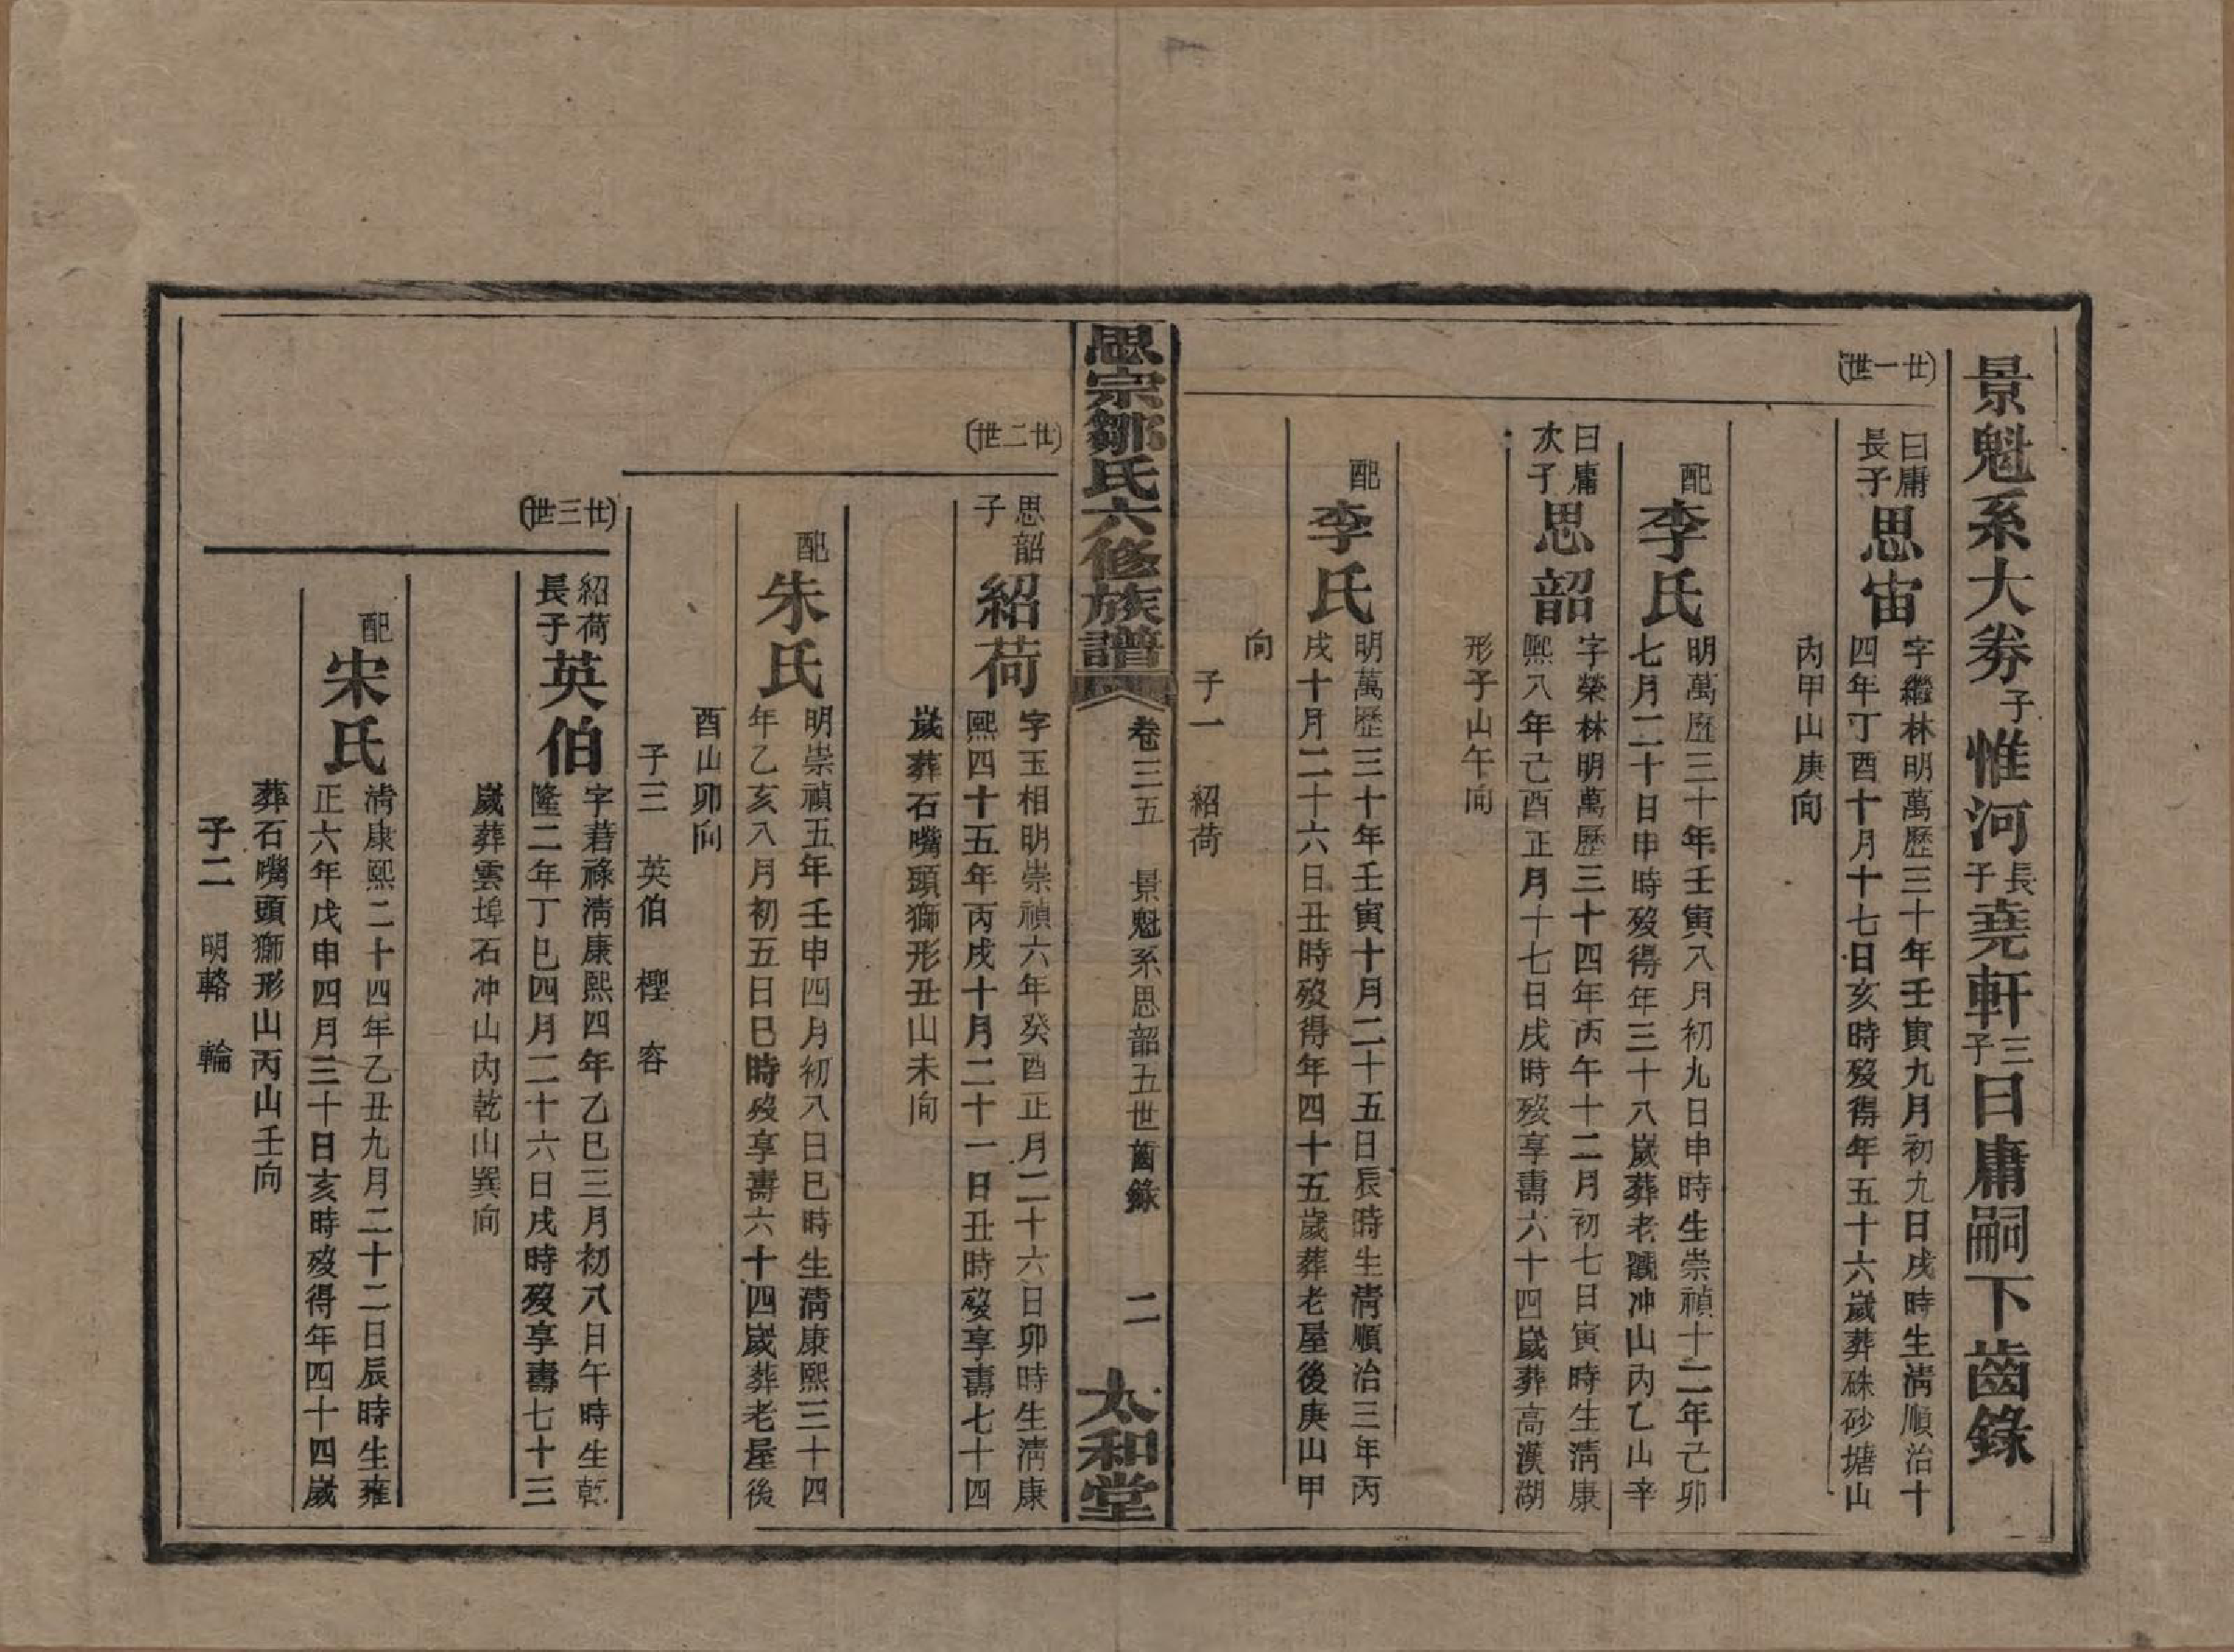 景魁系大劵子惟河長子堯軒三子曰庸嗣下齒錄
(廿一世)
曰庸長子思宙字繼林明萬歷三十年壬寅九月初九日戌時生淸順治十
四年丁酉十月十七日亥時歿得年五十六歲葬硃砂塘山
內甲山庚向
配李氏明萬歷三十年壬寅八月初九日申時生崇禎十二年己卯
七月二十日申時歿得年三十八歲葬老戬冲山內乙山辛
曰庸次子思韶字榮林明萬歷三十四年丙午十二月初七日寅時生淸康
熙八年己酉正月十七日戌時歿享壽六十四歲葬高漢湖
形子山午向
配李氏明萬歷三十年壬寅十月二十五日辰時生淸順治三年丙
戌十月二十六日丑時歿得年四十五歲葬老屋後庚山甲
向
子一 紹荷
思宗鄒氏六修族譜 卷三五 景魁系思韶五世齒錄 二 太和堂
(廿二世)
思韶子紹荷字玉相明崇禎六年癸酉正月二十六日卯時生淸康
熙四十五年丙戌十月二十一日丑時歿享壽七十四
歲葬石嘴頭獅形丑山未向
配朱氏明崇禎五年壬申四月初八日巳時生淸康熙三十四
年乙亥八月初五日巳時歿享壽六十四歲葬老屋後
酉山卯向
子三 英伯 檉 容
(廿三世)
紹荷長子英伯字若祿淸康熙四年乙巳三月初八日午時生乾
隆二年丁巳四月二十六日戌時歿享壽七十三
歲葬雲埠石冲山內乾山巽向
配宋氏淸康熙二十四年乙丑九月二十二日辰時生雍
正六年戊申四月三十日亥時歿得年四十四歲
葬石嘴頭獅形山丙山壬向
子二 明輅 輪